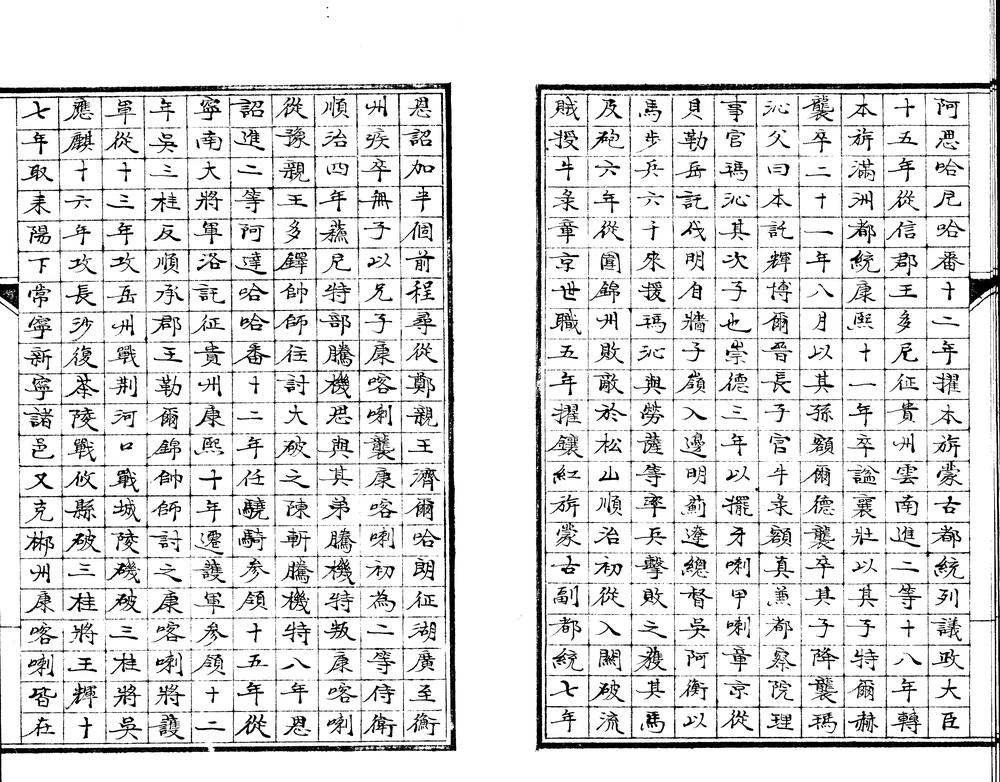 阿思哈尼哈番十二年擢本旂蒙古都統列議政大臣
十五年從信郡王多尼征貴州雲南進二等十八年轉
本旂滿洲都統康熙十一年卒諡襄壯以其子特爾赫
襲卒二十一年八月以其孫額爾德襲卒其子降襲瑪
沁父曰本託輝博爾晉長子官牛彔額真兼都察院理
事官瑪沁其次子也崇德三年以擺牙喇甲喇章京從
貝勒岳託伐明自牆子嶺入邊明薊遼總督吳阿衡以
馬步兵六千來援瑪沁與勞薩等率兵擊敗之獲其馬
及砲六年從圍錦州敗敵於松山順治初從入關破流
賊授牛彔章京世職五年擢鑲紅旂蒙古副都統七年
恩詔加半個前程尋從鄭親王濟爾哈朗征湖廣至衡
州疾卒無子以兄子康喀喇襲康喀喇初為二等侍衛
順治四年蘇尼特部騰機思與其弟騰機特叛康喀喇
從豫親王多鐸帥師往討大破之陳斬騰機特八年恩
詔進二等阿達哈哈番十二年任驍騎參領十五年從
寧南大將軍洛託征貴州康熙十年遷護軍參領十二
年吳三桂反順承郡王勒爾錦帥師討之康喀喇將護
軍從十三年攻岳州戰荊河口戰城陵磯破三桂將吳
應麒十六年攻長沙復茶陵戰攸縣破三桂將王輝十
七年取耒陽下常寧新寧諸邑又克郴州康喀喇皆在